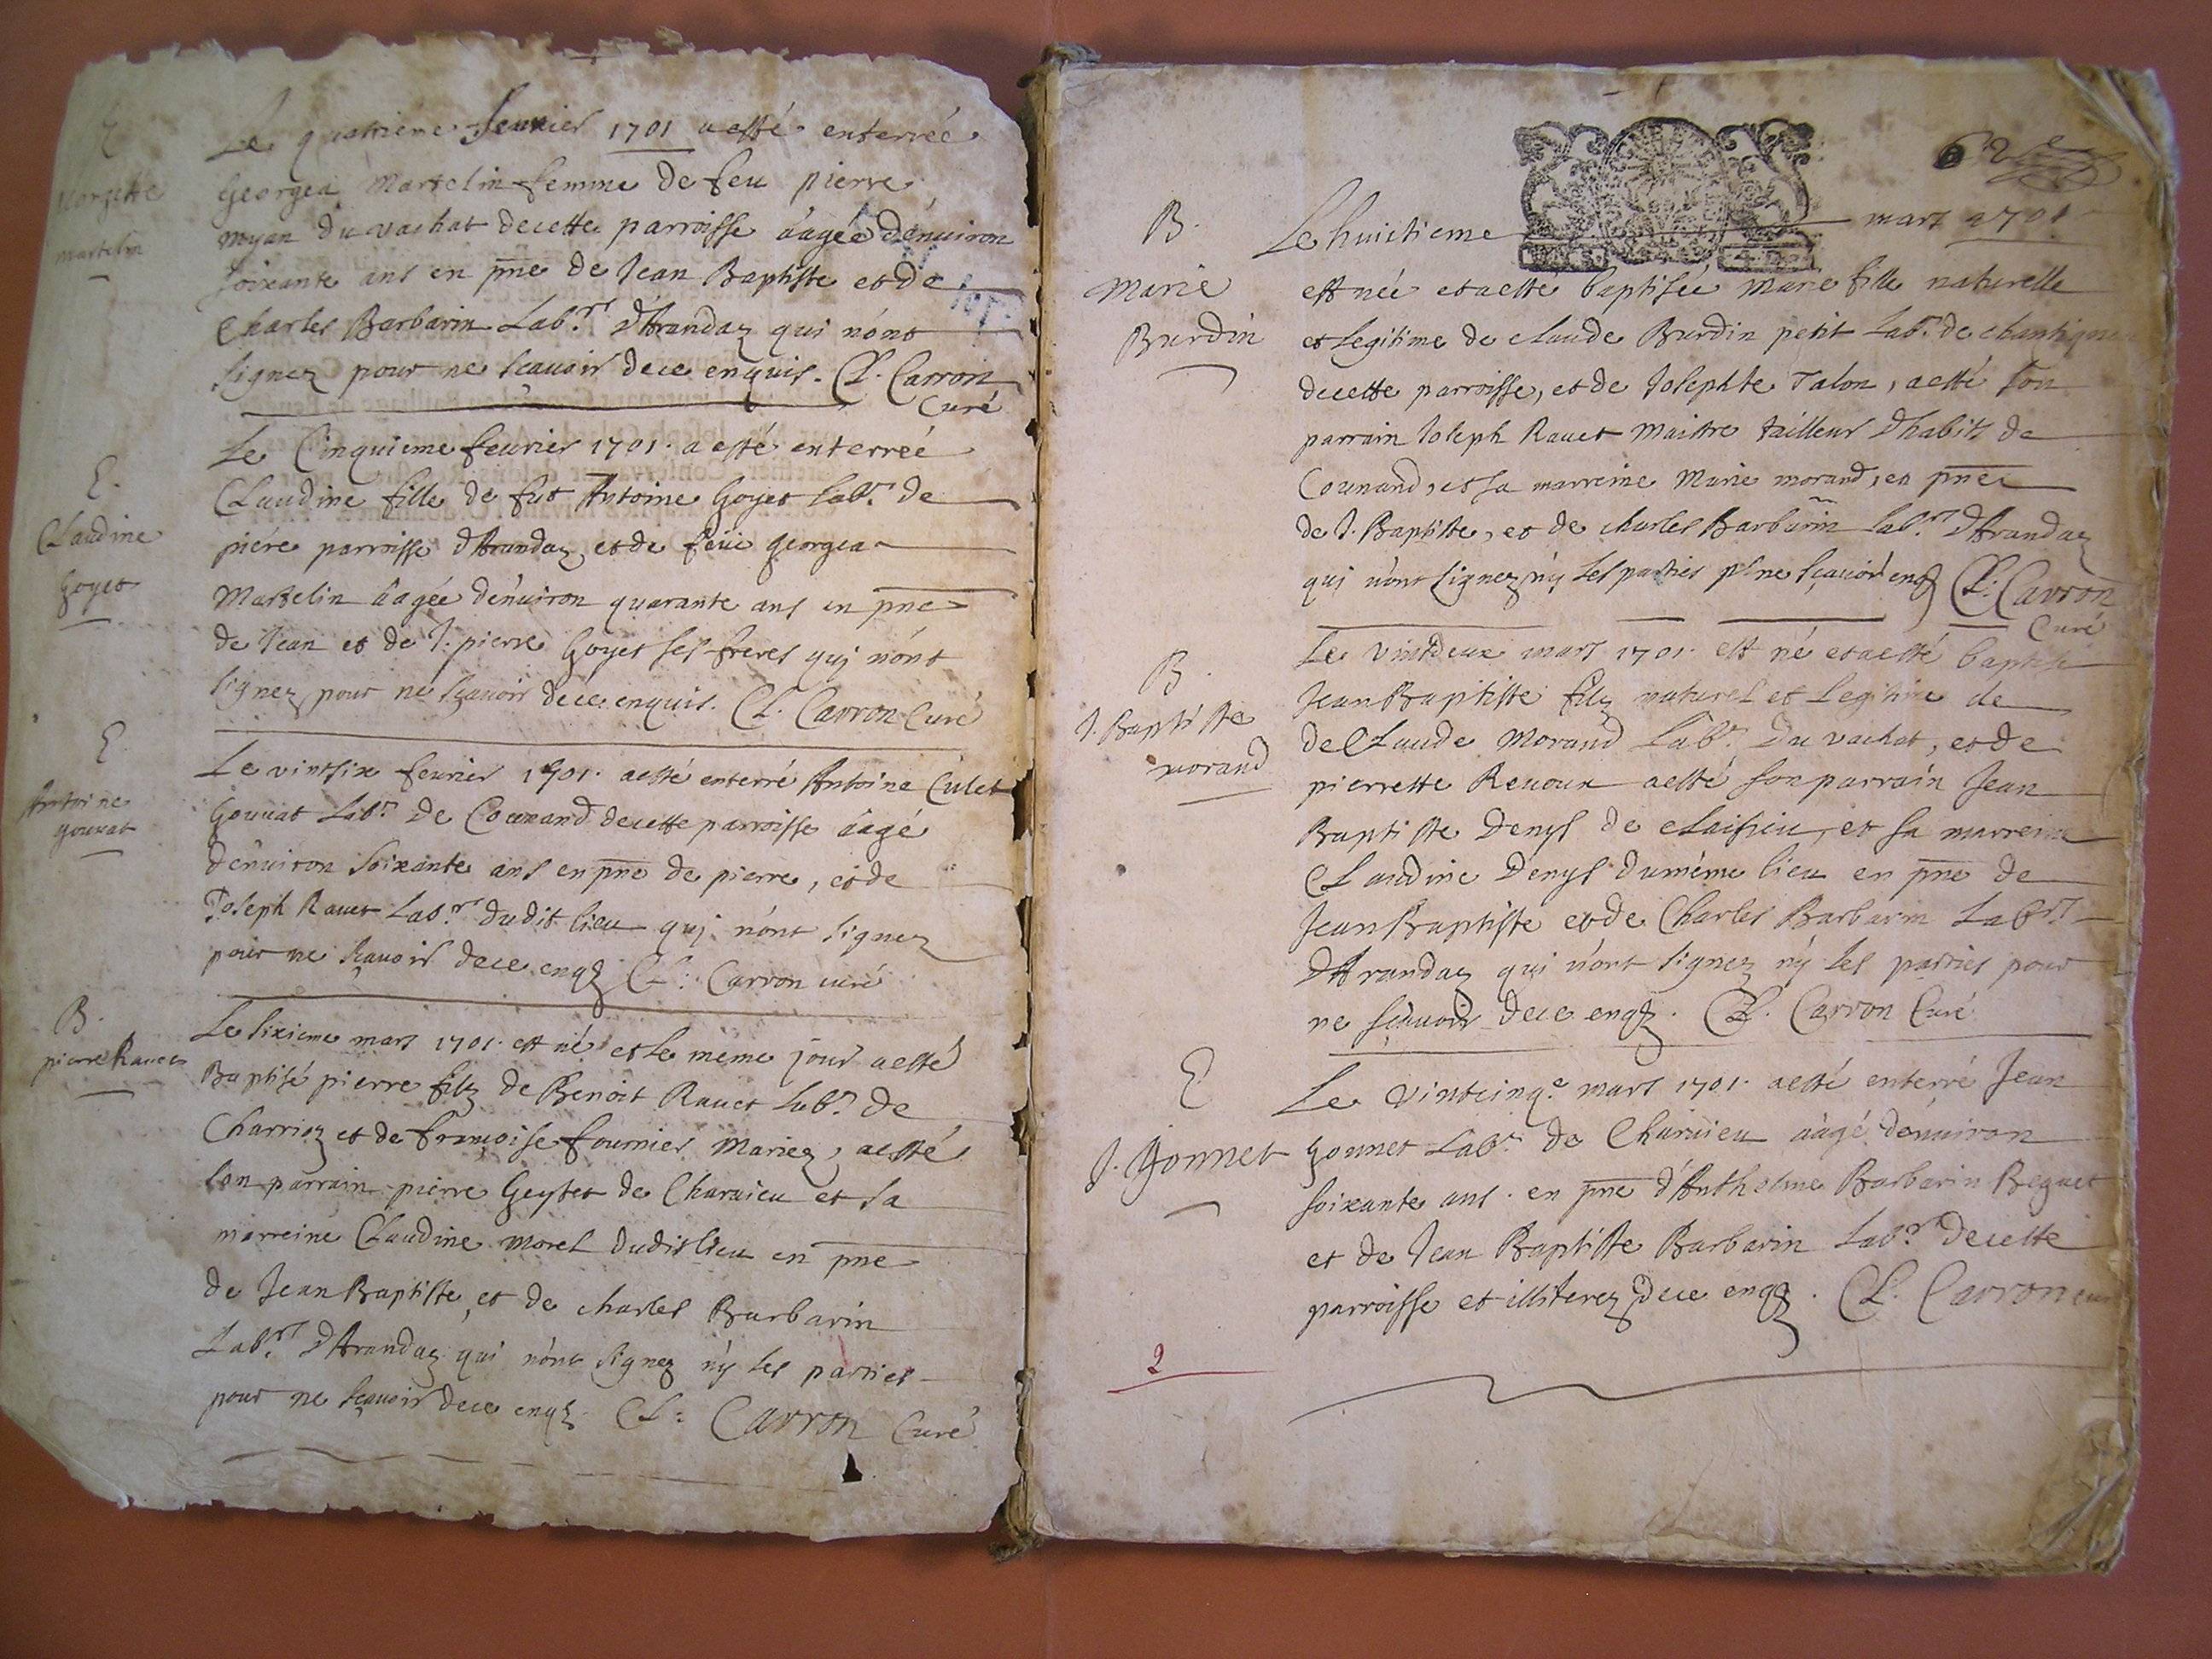 E
Georgette
martelin
Le quatrieme feurier 1701 a esté enterreé
Georgea Martelin femme de feu pierre
moyan du vachat de cette parroisse aâgeé d'enuiron
soixante ans en pñce de Jean Baptiste et de
Charles Barbarin Lab.rs d'Arandaz qui n'ont
signez pour ne sçauoir de ce enquis. Cl. Carron
Curé
E.
Claudine
Goyet
Le Cinquieme feurier 1701. a esté enterreé
Claudine fille de fut Antoine Goyet Lab.r de
piére parroisse d'Arandaz, et de feüe georgea
Martelin aâgeé d'enuiron quarante ans en pñce
de Jean et de J. pierre Goyet ses freres qui n'ont
signez pour ne sçauoir de ce enquis. Cl. Carron Curé
E
Antoine
gouuat
Le vintsix feurier 1701. a esté enterré Antoine Culet
Gouuat Lab.r de Counand de cette parroisse aâgé
d'enuiron soixante ans en pñce de pierre, et de
Joseph Rauet Lab.rs dudit lieu qui n'ont signez
pour ne sçauoir de ce enqz Cl: Carron curé
B.
pierre Rauet
Le sixieme mars 1701. est né et le meme jour a esté
Baptisé pierre filz de Benoit Rauet Lab.r de
Charrioz et de françoise fournier Mariez, a esté
son parrain pierre Geytet de Charuieu et sa
marreine Claudine Morel dudit lieu en pñce
de Jean Baptiste, et de charles Barbarin
Lab.rs d'Arandaz qui n'ont signez n'y les parties
pour ne sçauoir de ce enqz. Cl: Carron Curé
62e
B.
Marie
Burdin
Le huictieme mars 1701
est neé et a esté baptiseé Marie fille naturelle
et Legitime de claude Burdin petit Lab.r de
de cette parroisse, et de Josephte Talon, a esté son
parrain Joseph Rauet Maistre tailleur d'habits de
Counand, et sa marreine Marie morand, en pñce
de J. Baptiste, et de charles Barbarin Lab.rs d'Arandaz
qui n'ont signez n'y les parties pr ne sçauoir enqz Cl: Carron
Curé
B.
J. Baptiste
morand
Le vintdeux mars 1701. est né et a esté baptisé
Jean Baptiste filz naturel et Legitime de
de Claude Morand Lab.r du vachat, et de
pierrette Reuoux a esté son parrain Jean
Baptiste Denys de claisieu, et sa marreine
Claudine Denys du méme lieu en pñce de
Jean Baptiste et de Charles Barbarin Lab.rs
d'Arandaz qui n'ont signez n'y les parties pour
ne sçauoir de ce enqz. Cl. Carron Curé
E
J. Gonnet
Le vintcinq.e mars 1701. a esté enterré Jean
gonnet Lab.r de Charuieu aâgé d'enuiron
soixante ans. en pñce d'Anthelme Barbarin Beguet
et de Jean Baptiste Barbarin Lab.rs de cette
parroisse et illiterez de ce enqz. Cl. Carron curé
2